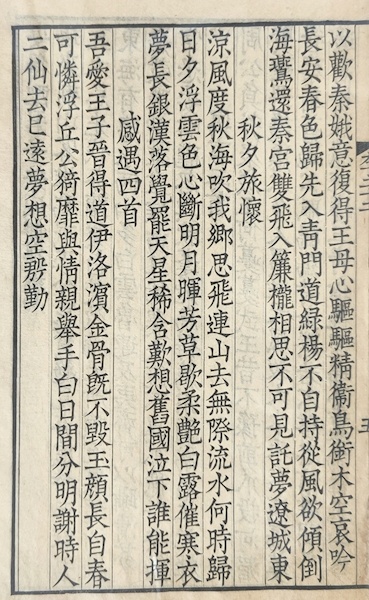 以歡秦娥意復得王母心驅驅精衞鳥銜木空哀吟
長安春色歸先入青門道綠楊不自持從風欲傾倒
海鷰還秦宮雙飛入簾櫳相思不可見託夢遼城東
秋夕旅懷
涼風度秋海吹我鄉思飛連山去無際流水何時歸
日夕浮雲色心斷明月暉芳草歇柔艷白露催寒衣
夢長銀漢落覺罷天星稀含歎想舊國泣下誰能揮
感遇四首
吾愛王子晉得道伊洛濱金骨旣不毀玉顏長自春
可憐浮丘公猗靡與情親舉手白日間分明謝時人
二仙去已遠夢想空殷勤